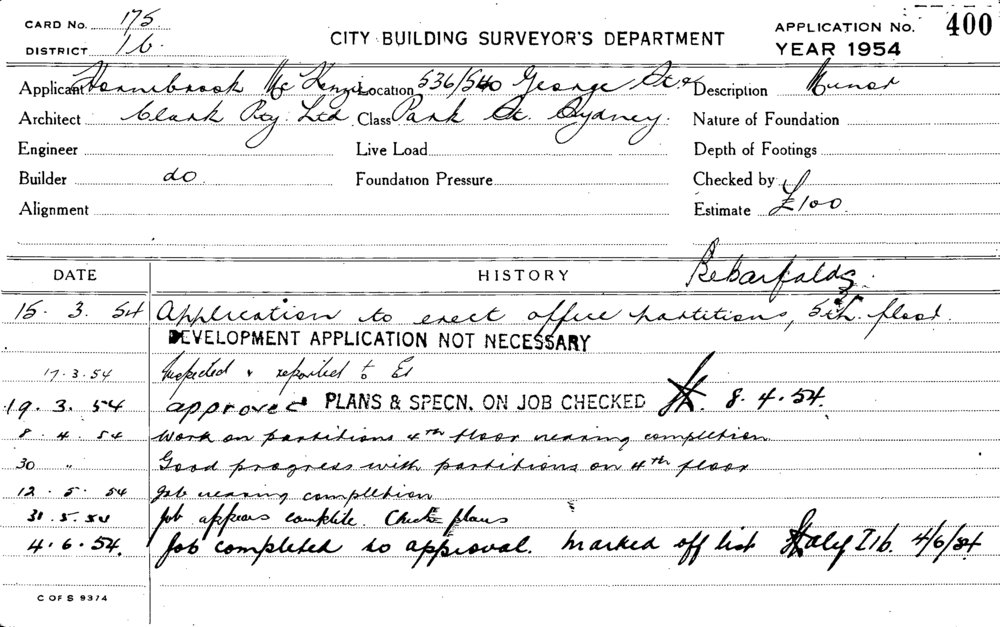 CARD No. 175
DISTRICT 1b
CITY BUILDING SURVEYOR'S DEPARTMENT
APPLICATION No. 400
YEAR 1954
Applicant Hornibrook McKenzie Location 536/540 George St & Description Minor
Architect Clark Pty. Ltd Class Park St. Sydney. Nature of Foundation
Engineer Live Load Depth of Footings
Builder do Foundation Pressure Checked by
Alignment Estimate £100.
DATE HISTORY Bebarfalds.
15. 3. 54 Application to erect office partitions, 5th. floor.
DEVELOPMENT APPLICATION NOT NECESSARY
17.3.54 Inspected & reported to
19. 3. 54 approved PLANS & SPECN. ON JOB CHECKED 8.4.54.
8. 4. 54 Work on partitions 4th floor nearing completion
30 " Good progress with partitions on 4th floor
12. 5. 54 Job nearing completion
31.5.54 Job appears complete. Check plans
4.6.54. Job completed to approval. Marked off list 4/6/54
C OF S 9374